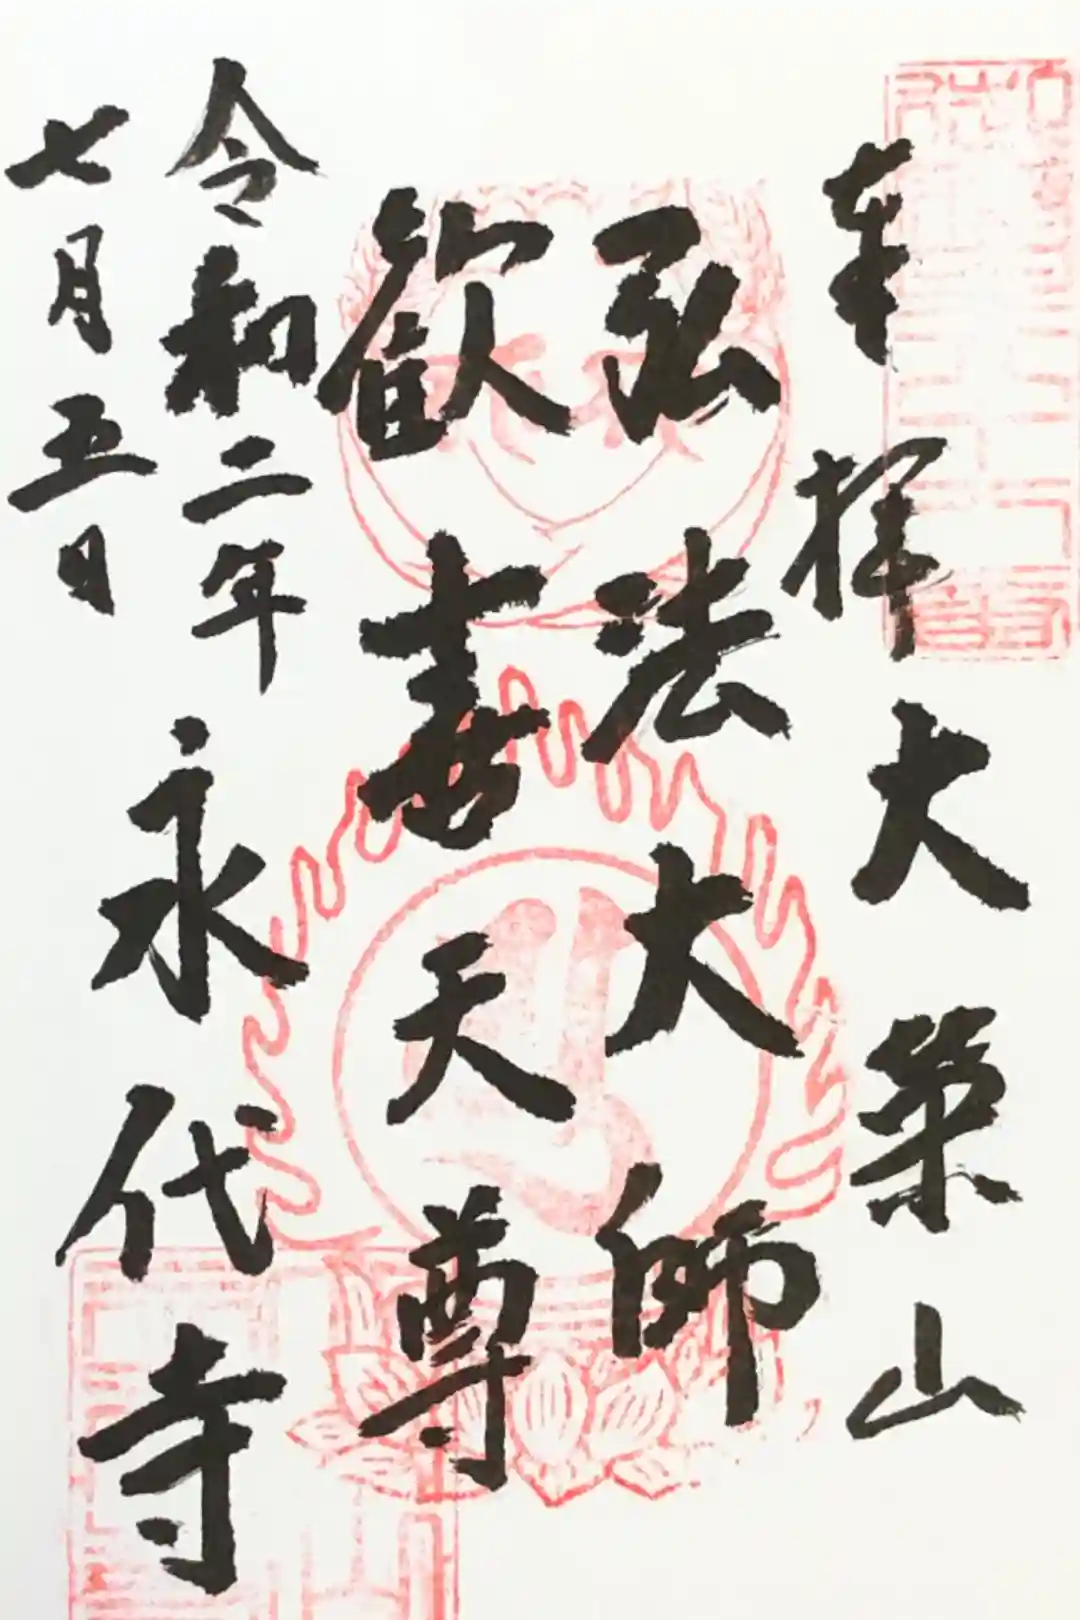 奉拝
大栄山
弘法大師
歓喜天尊
令和二年
七月五日
永代寺